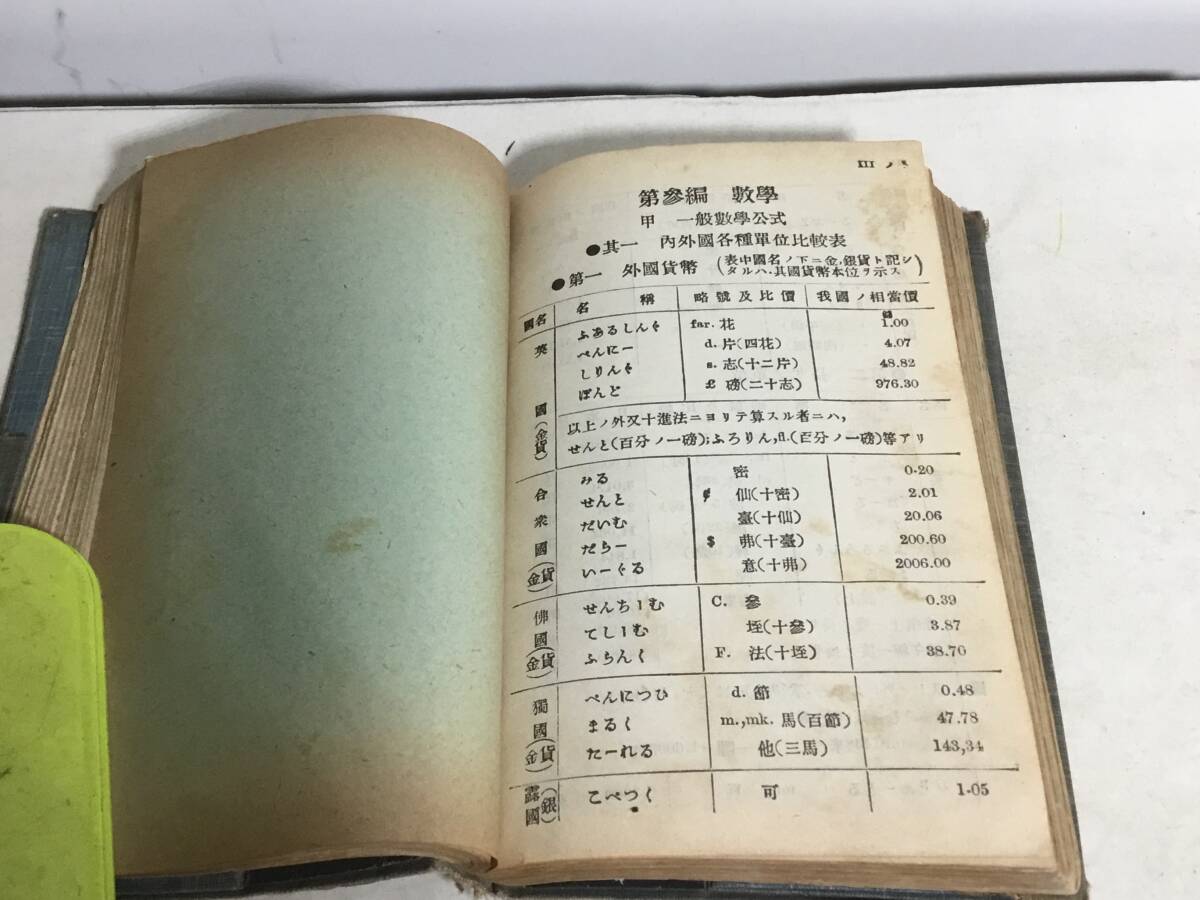 III
第參編 數學
甲 一般數學公式
●其一 內外國各種單位比較表
●第一 外國貨幣 (表中國名ノ下ニ金,銀貨ト記シタルハ,其國貨幣本位ヲ示ス)
國名 名稱 略號及比價 我國ノ相當價
英國(金貨)
ふあるしんぐ far. 花 1.00
ぺんにー d. 片(四花) 4.07
しりんぐ s. 志(十二片) 48.82
ぽんど £ 磅(二十志) 976.30
以上ノ外又十進法ニヨリテ算スル者ニハ,
せんと(百分ノ一磅);ふろりん,fl.(百分ノ一磅)等アリ
合衆國(金貨)
みる 密 0.20
せんと ¢ 仙(十密) 2.01
だいむ 臺(十仙) 20.06
だらー $ 弗(十臺) 200.60
いーぐる 意(十弗) 2006.00
佛國(金貨)
せんちーむ C. 參 0.39
てしーむ 垤(十參) 3.87
ふらんく F. 法(十垤) 38.70
獨國(金貨)
ぺんにつひ d. 節 0.48
まるく m.,mk. 馬(百節) 47.78
たーれる 他(三馬) 143,34
露國(銀)
こぺつく 可 1.05